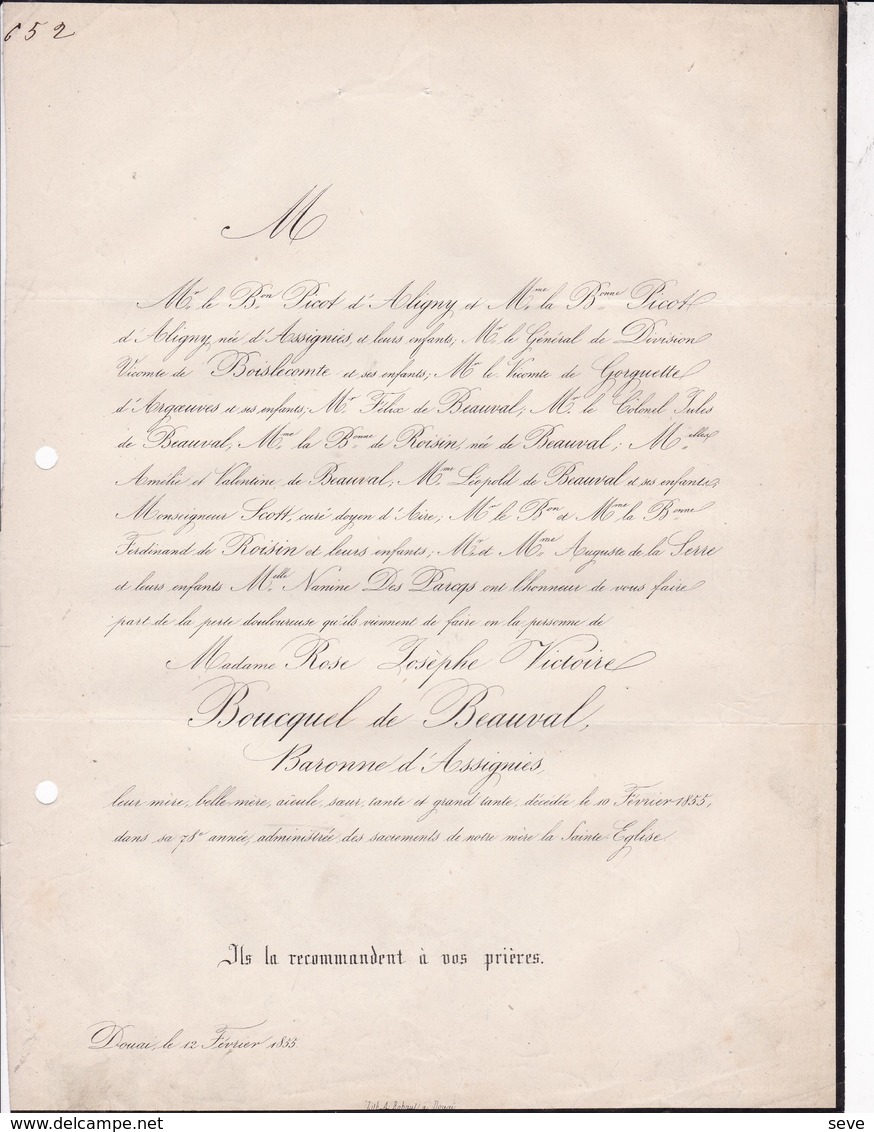 652
M
Mr. le Bon. Picot d'Aligny et Mme. la Bonne. Picot
d'Aligny, née d'Assignies, et leurs enfants; Mr. le Général de Division
Vicomte de Boislecomte et ses enfants; Mr. le Vicomte de Gorguette
d'Argœuves et ses enfants; Mr. Félix de Beauval; Mr. le Colonel Jules
de Beauval, Mme. la Bonne. de Roisin, née de Beauval; Melles.
Amélie et Valentine de Beauval; Mme. Léopold de Beauval et ses enfants;
Monseigneur Scott, curé doyen d'Aire; Mr. le Bon. et Mme. la Bonne.
Ferdinand de Roisin et leurs enfants; Mr. et Mme. Auguste de la Serre
et leurs enfants Melle. Nanine Des Parcqs ont l'honneur de vous faire
part de la perte douloureuse qu'ils viennent de faire en la personne de
Madame Rose Josèphe Victoire
Boucquel de Beauval,
Baronne d'Assignies,
leur mère, belle mère, aïeule, sœur, tante et grand'tante, décédée le 10 Février 1855,
dans sa 78e année, administrée des sacrements de notre mère la Sainte Eglise.
Ils la recommandent à vos prières.
Douai, le 12 Février 1855.
delcampe.net
seve